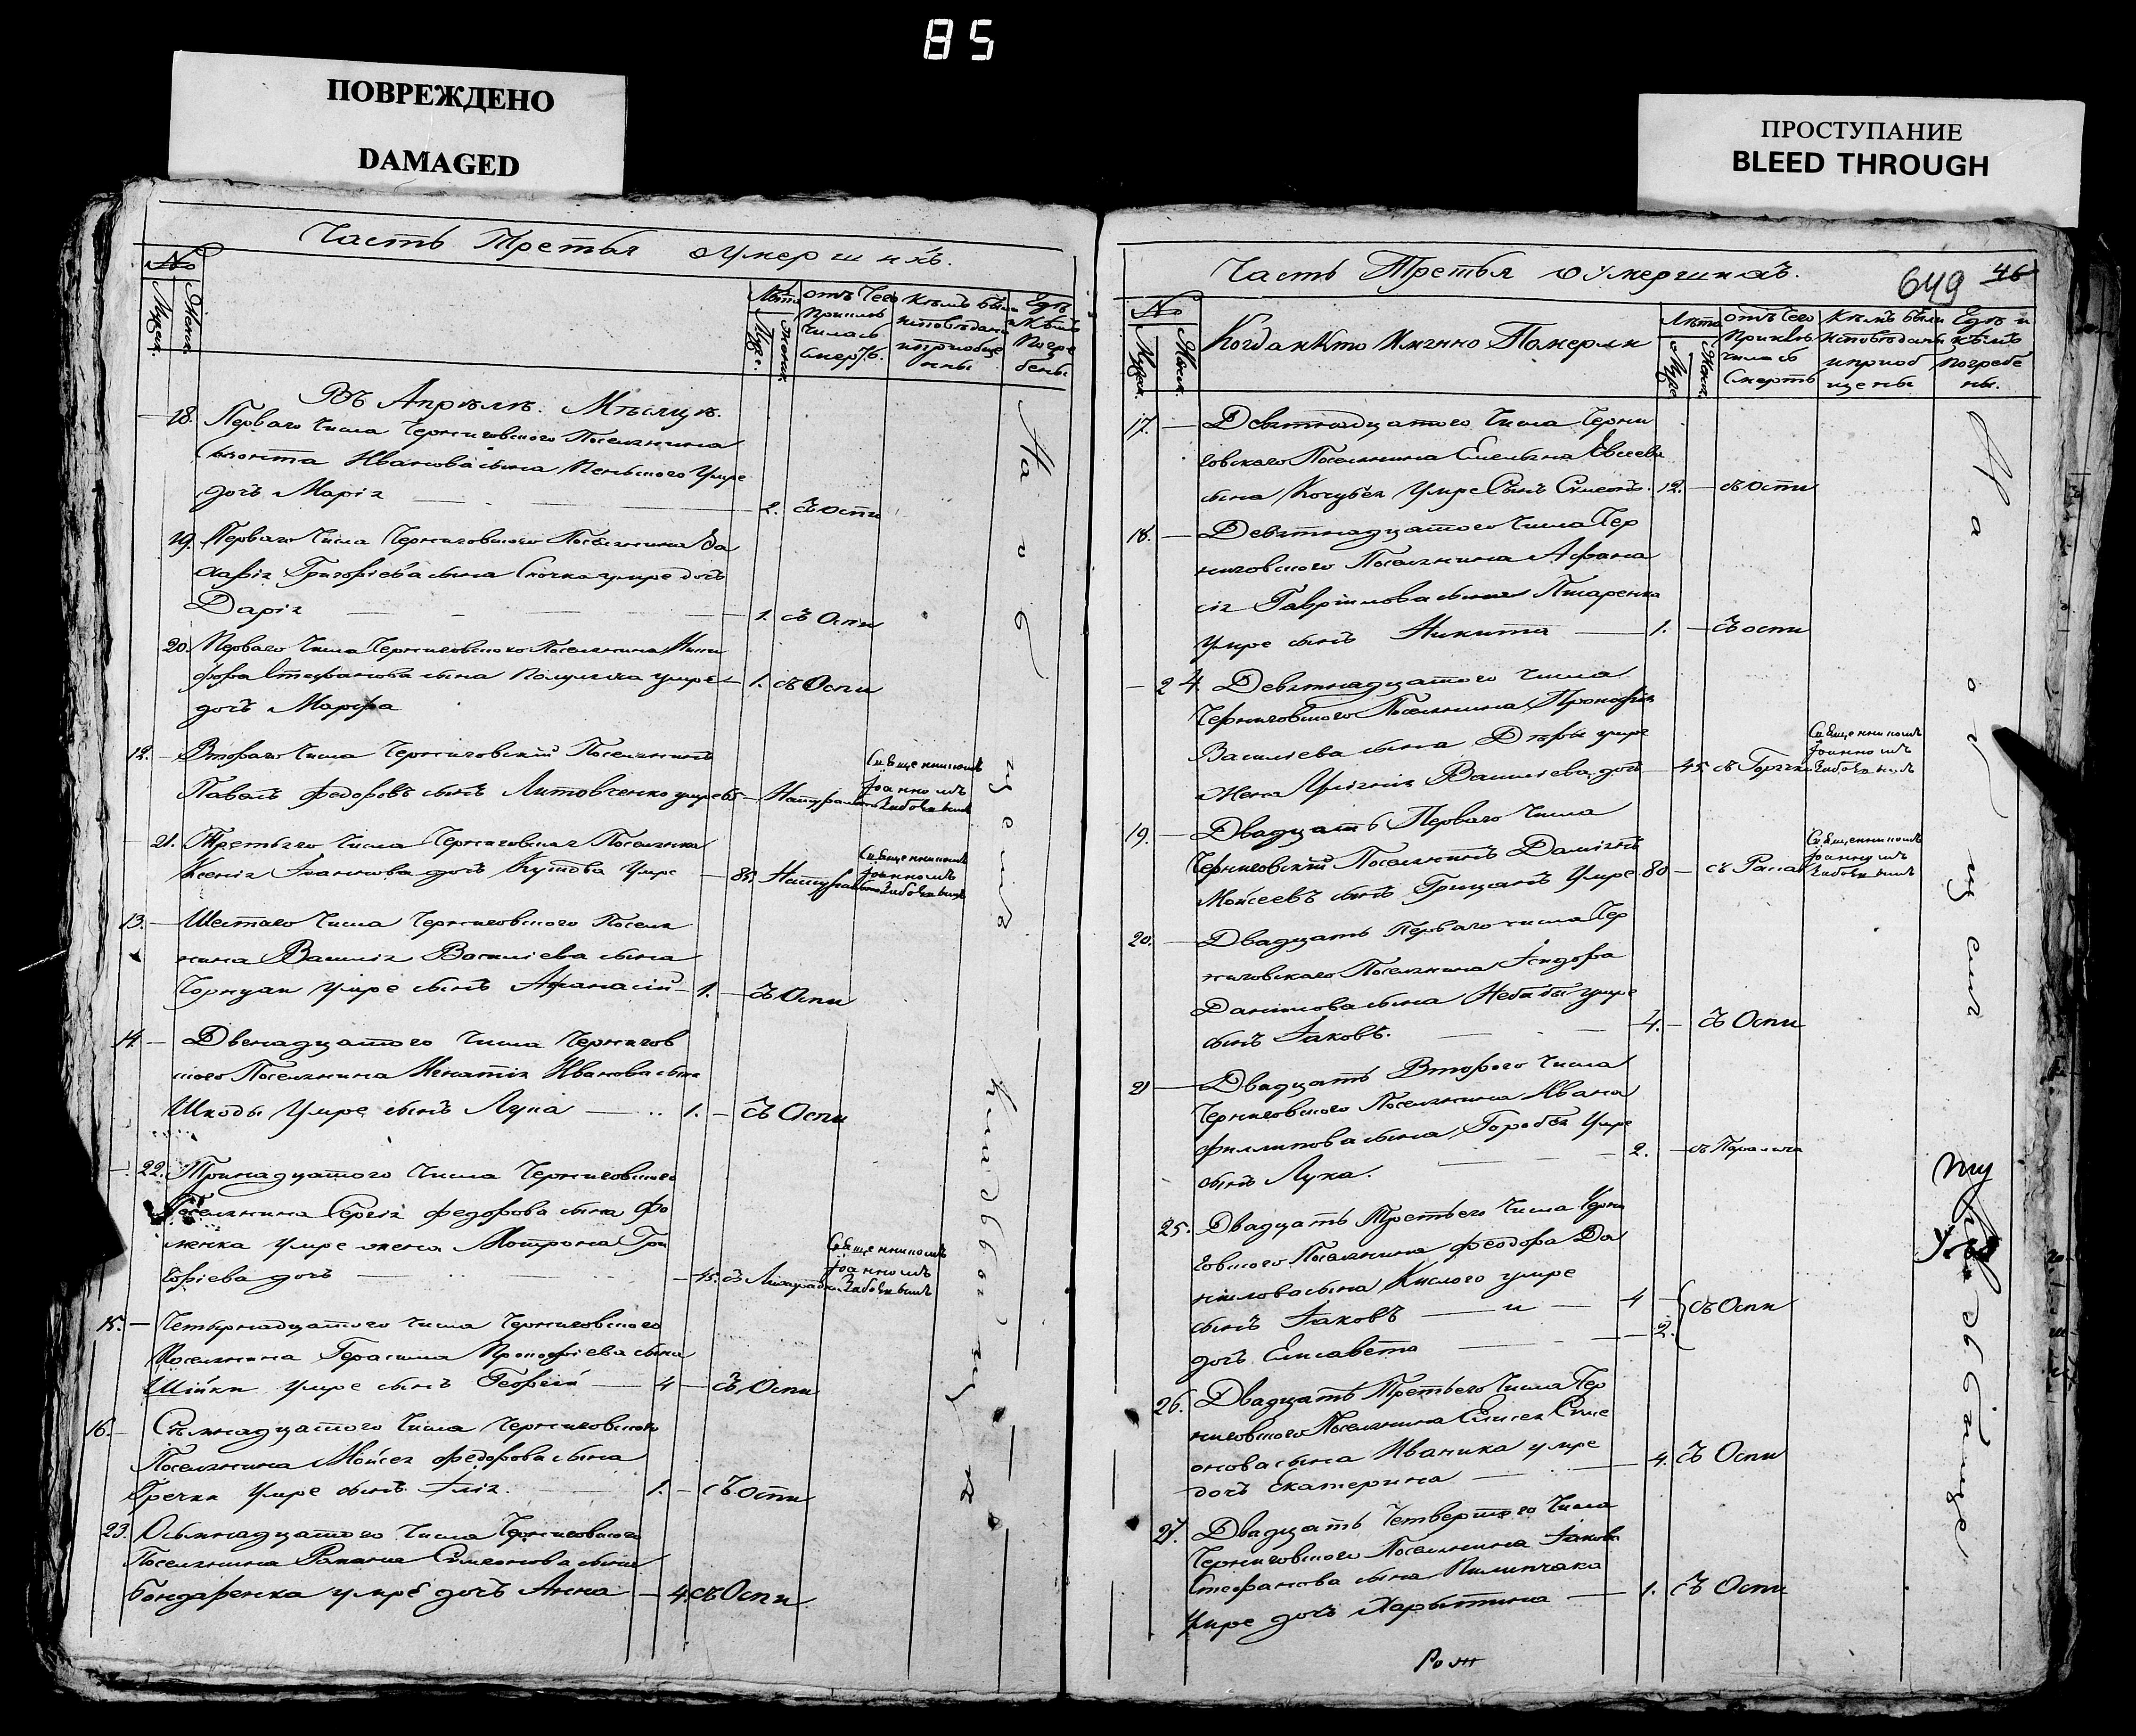 85
ПОВРЕЖДЕНО
DAMAGED
ПРОСТУПАНИЕ
BLEED THROUGH
Часть Третья о умершихъ.
№
Мужск.
Женск.
Лѣта
Муже.
Женск.
отъ чего
приклю
чилась
смерть.
Кѣмъ были
исповѣданы
и приобще
ны
Гдѣ
и кѣмъ
погре
бены
Въ Апрѣлѣ. Мѣсяцѣ.
18. Перваго Числа Черниговского Поселянина
Иванова сына умре
дочь Марія 2. съ Оспи
19. Перваго Числа Черниговского Поселянина За
харія Григоріева сына умре дочь
Дарія 1. съ Оспи
20. Перваго Числа Черниговского Поселянина Ники
фора Стефанова сына умре 1. съ Оспи
дочь Марфа
12. Втораго Числа Черниговскій Поселянинъ
Павелъ Федоровъ сынъ Литовченко умре Натурально
Священникомъ
Іоанномъ
21. Третьяго Числа Черниговская Поселянка
Ксенія Іоаннова дочь Кутова Умре 85. Натурально
Священникомъ
Іоанномъ
13. Шестаго Числа Черниговского Поселя
нина Василія Василіева сына
умре сынъ Афанасій 1. съ Оспи
14. Двенадцатого Числа Чернигов
ского Поселянина Игнатія Иванова сына
Шкоды Умре сынъ Лука 1. съ Оспи
22. Тринадцатого Числа Черниговского
Поселянина Сергія Федорова сына Фо
менка умре жена Мотрона Гри
горіева дочь 45. съ Лихорадки
Священникомъ
Іоанномъ
15. Четырнадцатого Числа Черниговского
Поселянина Герасима Прокофіева сына
Шійки умре сынъ Георгій 4 съ Оспи
16. Семнадцатого Числа Черниговского
Поселянина Мойсея Федорова сына
Гречки Умре сынъ Ілія. 1. съ Оспи
23. Осьмнадцатого Числа Черниговского
Поселянина Романа Симеонова сына
Бондаренка умре дочь Анна 4. съ Оспи
На общемъ
Кладбищѣ
Часть Третья о умершихъ.
649 46
№
Мужск.
Женск.
Когда и Кто Именно Померли
Лѣта
Муже
Женск.
отъ чего
приклю
чилась
Смерть
Кѣмъ были
исповѣданы
и приоб
щены
Гдѣ и
кѣмъ
погребе
ны.
17. Девятнадцатого Числа Черни
говского Поселянина Емельяна Евсеева
сына Кочубея Умре Сынъ Симеонъ. 12. съ Оспи
18. Девятнадцатого Числа Чер
ниговского Поселянина Афана
сія Гавріилова сына Писаренка
умре сынъ Никита 1. съ оспи
24. Девятнадцатого Числа
Черниговского Поселянина Прокофія
Василіева сына умре
жена Василіева дочь 45. съ Горячки
Священникомъ
Іоанномъ
19. Двадцать Перваго Числа
Черниговскій Поселянинъ Даміанъ
Мойсеевъ сынъ Грицанъ Умре 80
Священникомъ
Іоанномъ
20. Двадцать Перваго числа Чер
ниговского Поселянина Ісидора
Данилова сына Небабы умре
сынъ Іаковъ. 4. съ Оспи
21 Двадцать Второго Числа
Черниговского Поселянина Ивана
Филипова сына Горобея Умре
сынъ Лука. 2. съ Паралича
25. Двадцать Третьего Числа Черни
говского Поселянина Феодора Да
ниилова сына Кислого умре
сынъ Іаковъ и 4 съ Оспи
дочь Елисавета 2.
26. Двадцать Третьего Числа Чер
ниговского Поселянина Елисея Симе
онова сына Иваника умре
дочь Екатерина 4. съ Оспи
27. Двадцать Четвертого Числа
Черниговского Поселянина Іакова
Стефанова сына Пилипчака
Умре дочь Харытина 1. съ Оспи
На общемъ
Кладбище